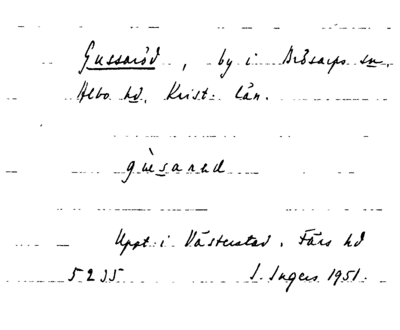 Gussaröd, by i Brösarps sn,
Albo hd, Krist. län.
gùsarud
Uppt. i Västerstad, Färs hd
5235 I. Ingers 1951.